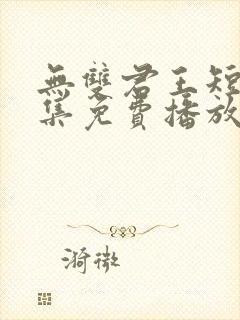 無雙君王短
集免費播放
漪微